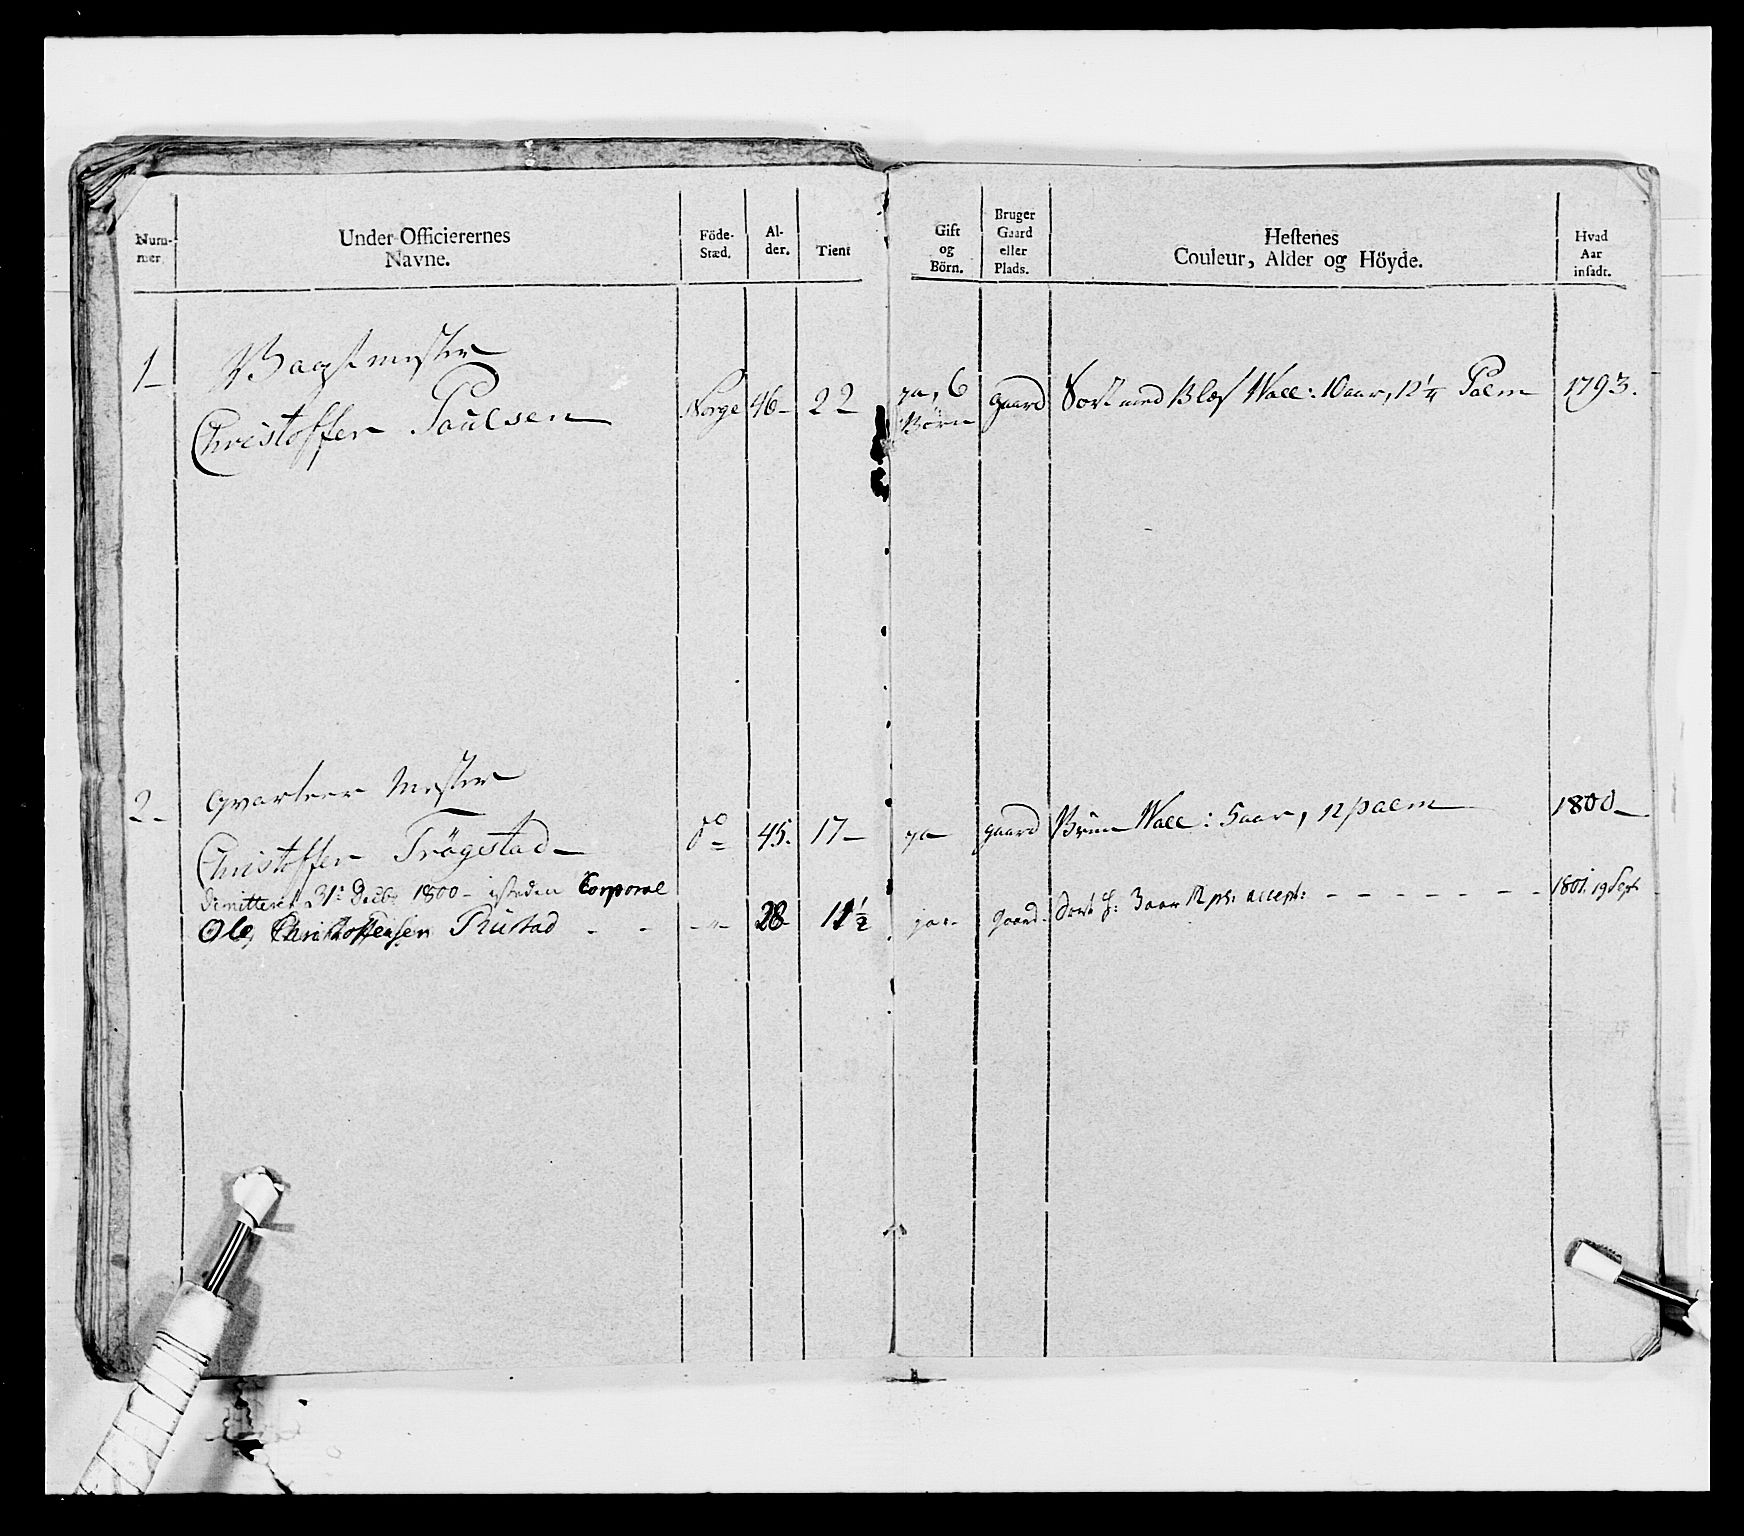 Num-
mer
Under-Officierernes
Navne.
Föde-
Stæd.
Al-
der.
Tient
Gift
og
Börn.
Bruger
Gaard
eller
Plads.
Hestenes
Couleur, Alder og Höyde.
Hvad
Aar
insadt.
1 Vagtmester
Christoffer Paulsen Norge 46 22 ja, 6 Börn gaard Sort med Blæs Wall: 10 aar, 12 1/4 Palm 1793.
2 Qvarteer Mester
Christoffer Trögstad do 45. 17 ja gaard Brun Wall: 5 aar, 12 palm 1800
Dimitteret 31te Decbr 1800 - isteden Corporal
Ole Christophersen Rustad - " - 28 11 1/2 ja gaard Sort H: 3 aar 12 pl: accept: 1801. 19 Sept